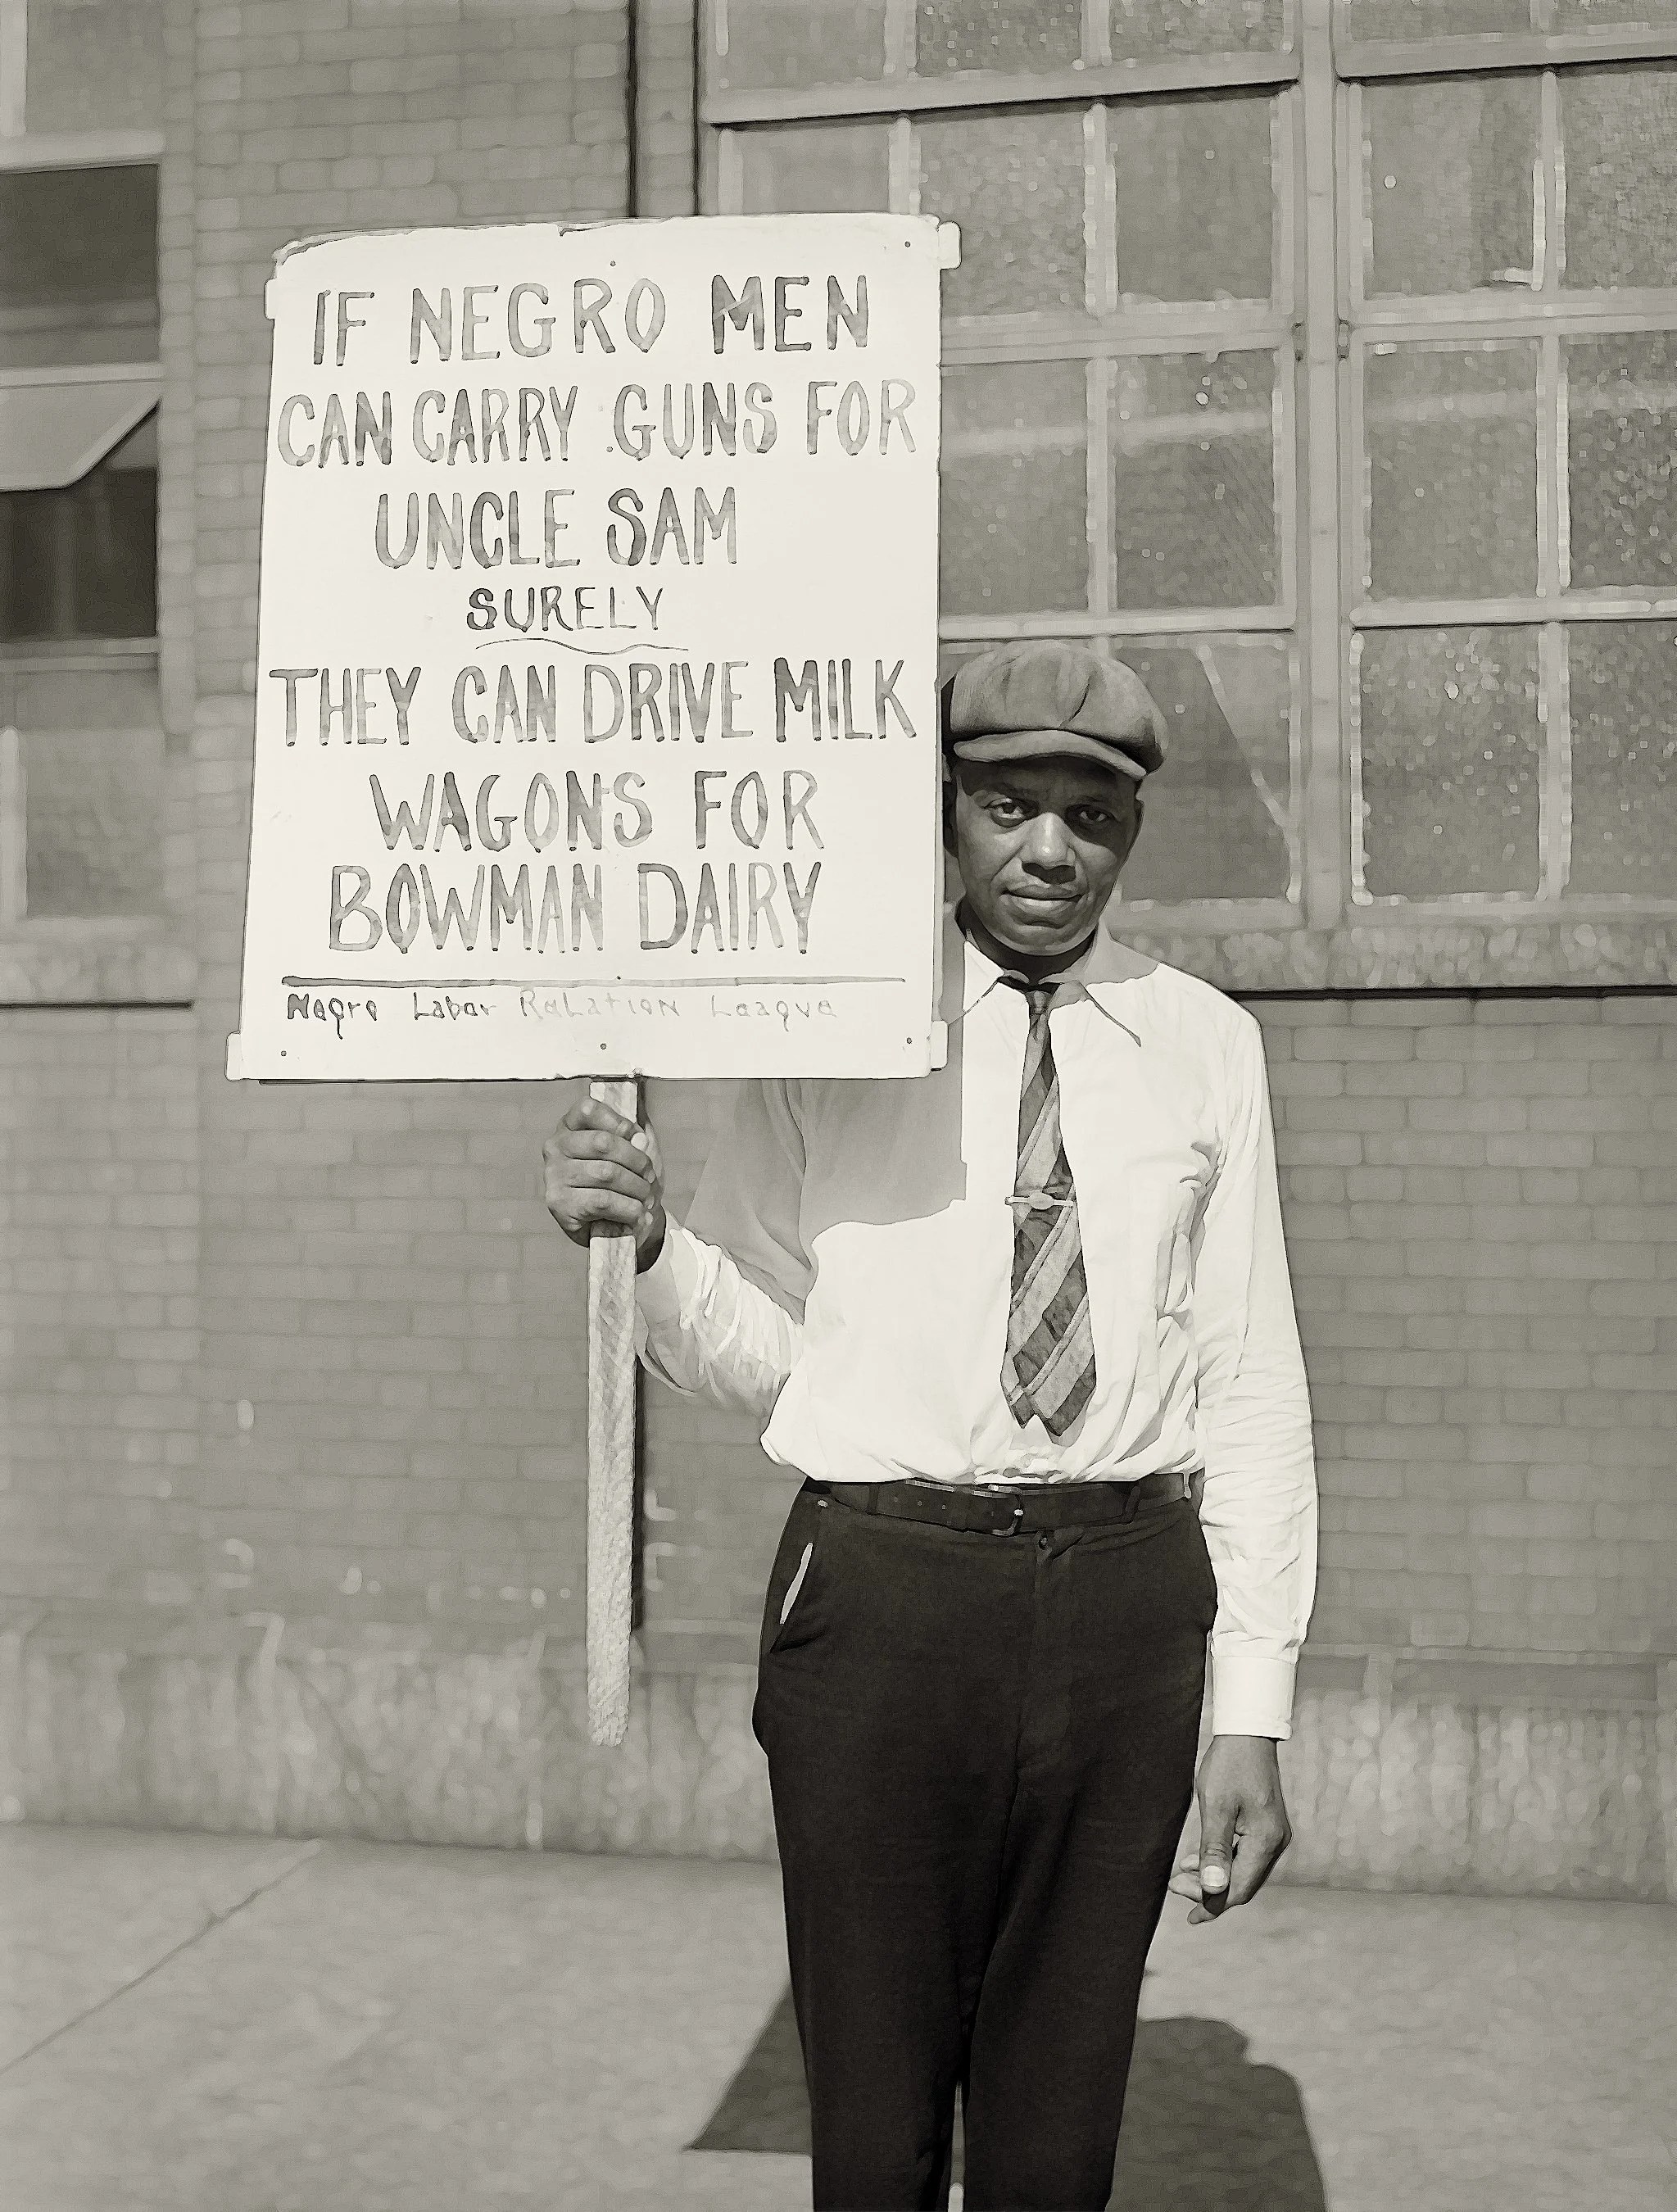 IF NEGRO MEN
CAN CARRY GUNS FOR
UNCLE SAM
SURELY
THEY CAN DRIVE MILK
WAGONS FOR
BOWMAN DAIRY
Negro Labor Relation League